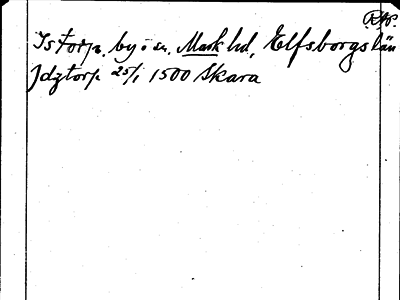 RAP.
Istorp. by o sn, Mark hd, Elfsborgs län
Jdztorp 25/1 1500 Skara